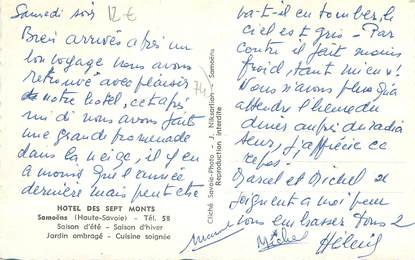 Samedi soir
12€
Bien arrivés après un
bon voyage nous avons
retrouvé avec plaisir
notre hotel, cet après
midi nous avons fait
une grande promenade
dans la neige, il y en
a moins que l'année
dernière mais peut etre
HOTEL DES SEPT MONTS
Samoëns (Haute-Savoie) - Tél. 58
Saison d'été - Saison d'hiver
Jardin ombragé - Cuisine soignée
Cliché Savoie-Photo - J. Nikoartlion - Samoëns
Reproduction interdite
74
va-t-il en tomber, le
ciel est gris - Par
contre il fait moins
froid, tant mieux!
Nous n'avons plus qu'à
attendre l'heure du
diner auprès du radia
teur, j'apprécie ce
repos!
Marcel et Michel se
joignent à moi pour
vous embrasser tous 2
Marcel Michel Hélène